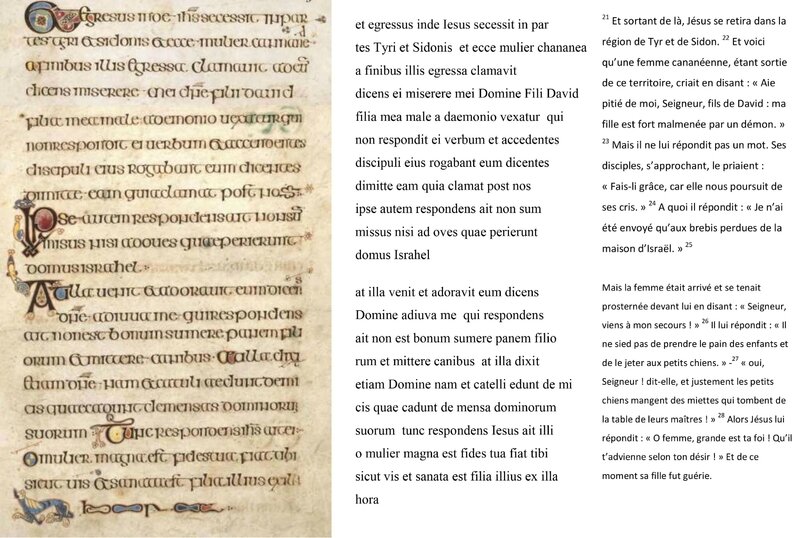 Et egressus inde ihs secessit in par
tes tyri et sidonis et ecce mulier
a finibus illis egressa clamauit
dicens miserere mei dne fili dauid
filia mea male a demonio uexatur qui
non respondit ei uerbum et accedentes
discipuli eius rogabant eum dicentes
dimitte eam quia clamat post nos
Ipse autem respondens ait non sum
misus nisi ad oues quae perierunt
domus israhel
At illa uenit et adorauit eum dicens
dne adiuua me qui respondens
ait non est bonum sumere panem filio
rum et mittere canibus at illa dixit
etiam dne nam et catuli edunt de mi
cis quae cadunt de mensa dominorum
suorum Tunc respondens ihs ait
o mulier magna est fides tua fiat tibi
sicut uis et sanata est filia illius ex illa
hora
et egressus inde Iesus secessit in par
tes Tyri et Sidonis et ecce mulier chananea
a finibus illis egressa clamavit
dicens ei miserere mei Domine Fili David
filia mea male a daemonio vexatur qui
non respondit ei verbum et accedentes
discipuli eius rogabant eum dicentes
dimitte eam quia clamat post nos
ipse autem respondens ait non sum
missus nisi ad oves quae perierunt
domus Israhel
at illa venit et adoravit eum dicens
Domine adiuva me qui respondens
ait non est bonum sumere panem filio
rum et mittere canibus at illa dixit
etiam Domine nam et catelli edunt de mi
cis quae cadunt de mensa dominorum
suorum tunc respondens Iesus ait illi
o mulier magna est fides tua fiat tibi
sicut vis et sanata est filia illius ex illa
hora
21 Et sortant de là, Jésus se retira dans la
région de Tyr et de Sidon. 22 Et voici
qu’une femme cananéenne, étant sortie
de ce territoire, criait en disant : « Aie
pitié de moi, Seigneur, fils de David : ma
fille est fort malmenée par un démon. »
23 Mais il ne lui répondit pas un mot. Ses
disciples, s’approchant, le priaient :
« Fais-li grâce, car elle nous poursuit de
ses cris. » 24 A quoi il répondit : « Je n’ai
été envoyé qu’aux brebis perdues de la
maison d’Israël. » 25
Mais la femme était arrivé et se tenait
prosternée devant lui en disant : « Seigneur,
viens à mon secours ! » 26 Il lui répondit : « Il
ne sied pas de prendre le pain des enfants et
de le jeter aux petits chiens. » -27 « oui,
Seigneur ! dit-elle, et justement les petits
chiens mangent des miettes qui tombent de
la table de leurs maîtres ! » 28 Alors Jésus lui
répondit : « O femme, grande est ta foi ! Qu’il
t’advienne selon ton désir ! » Et de ce
moment sa fille fut guérie.